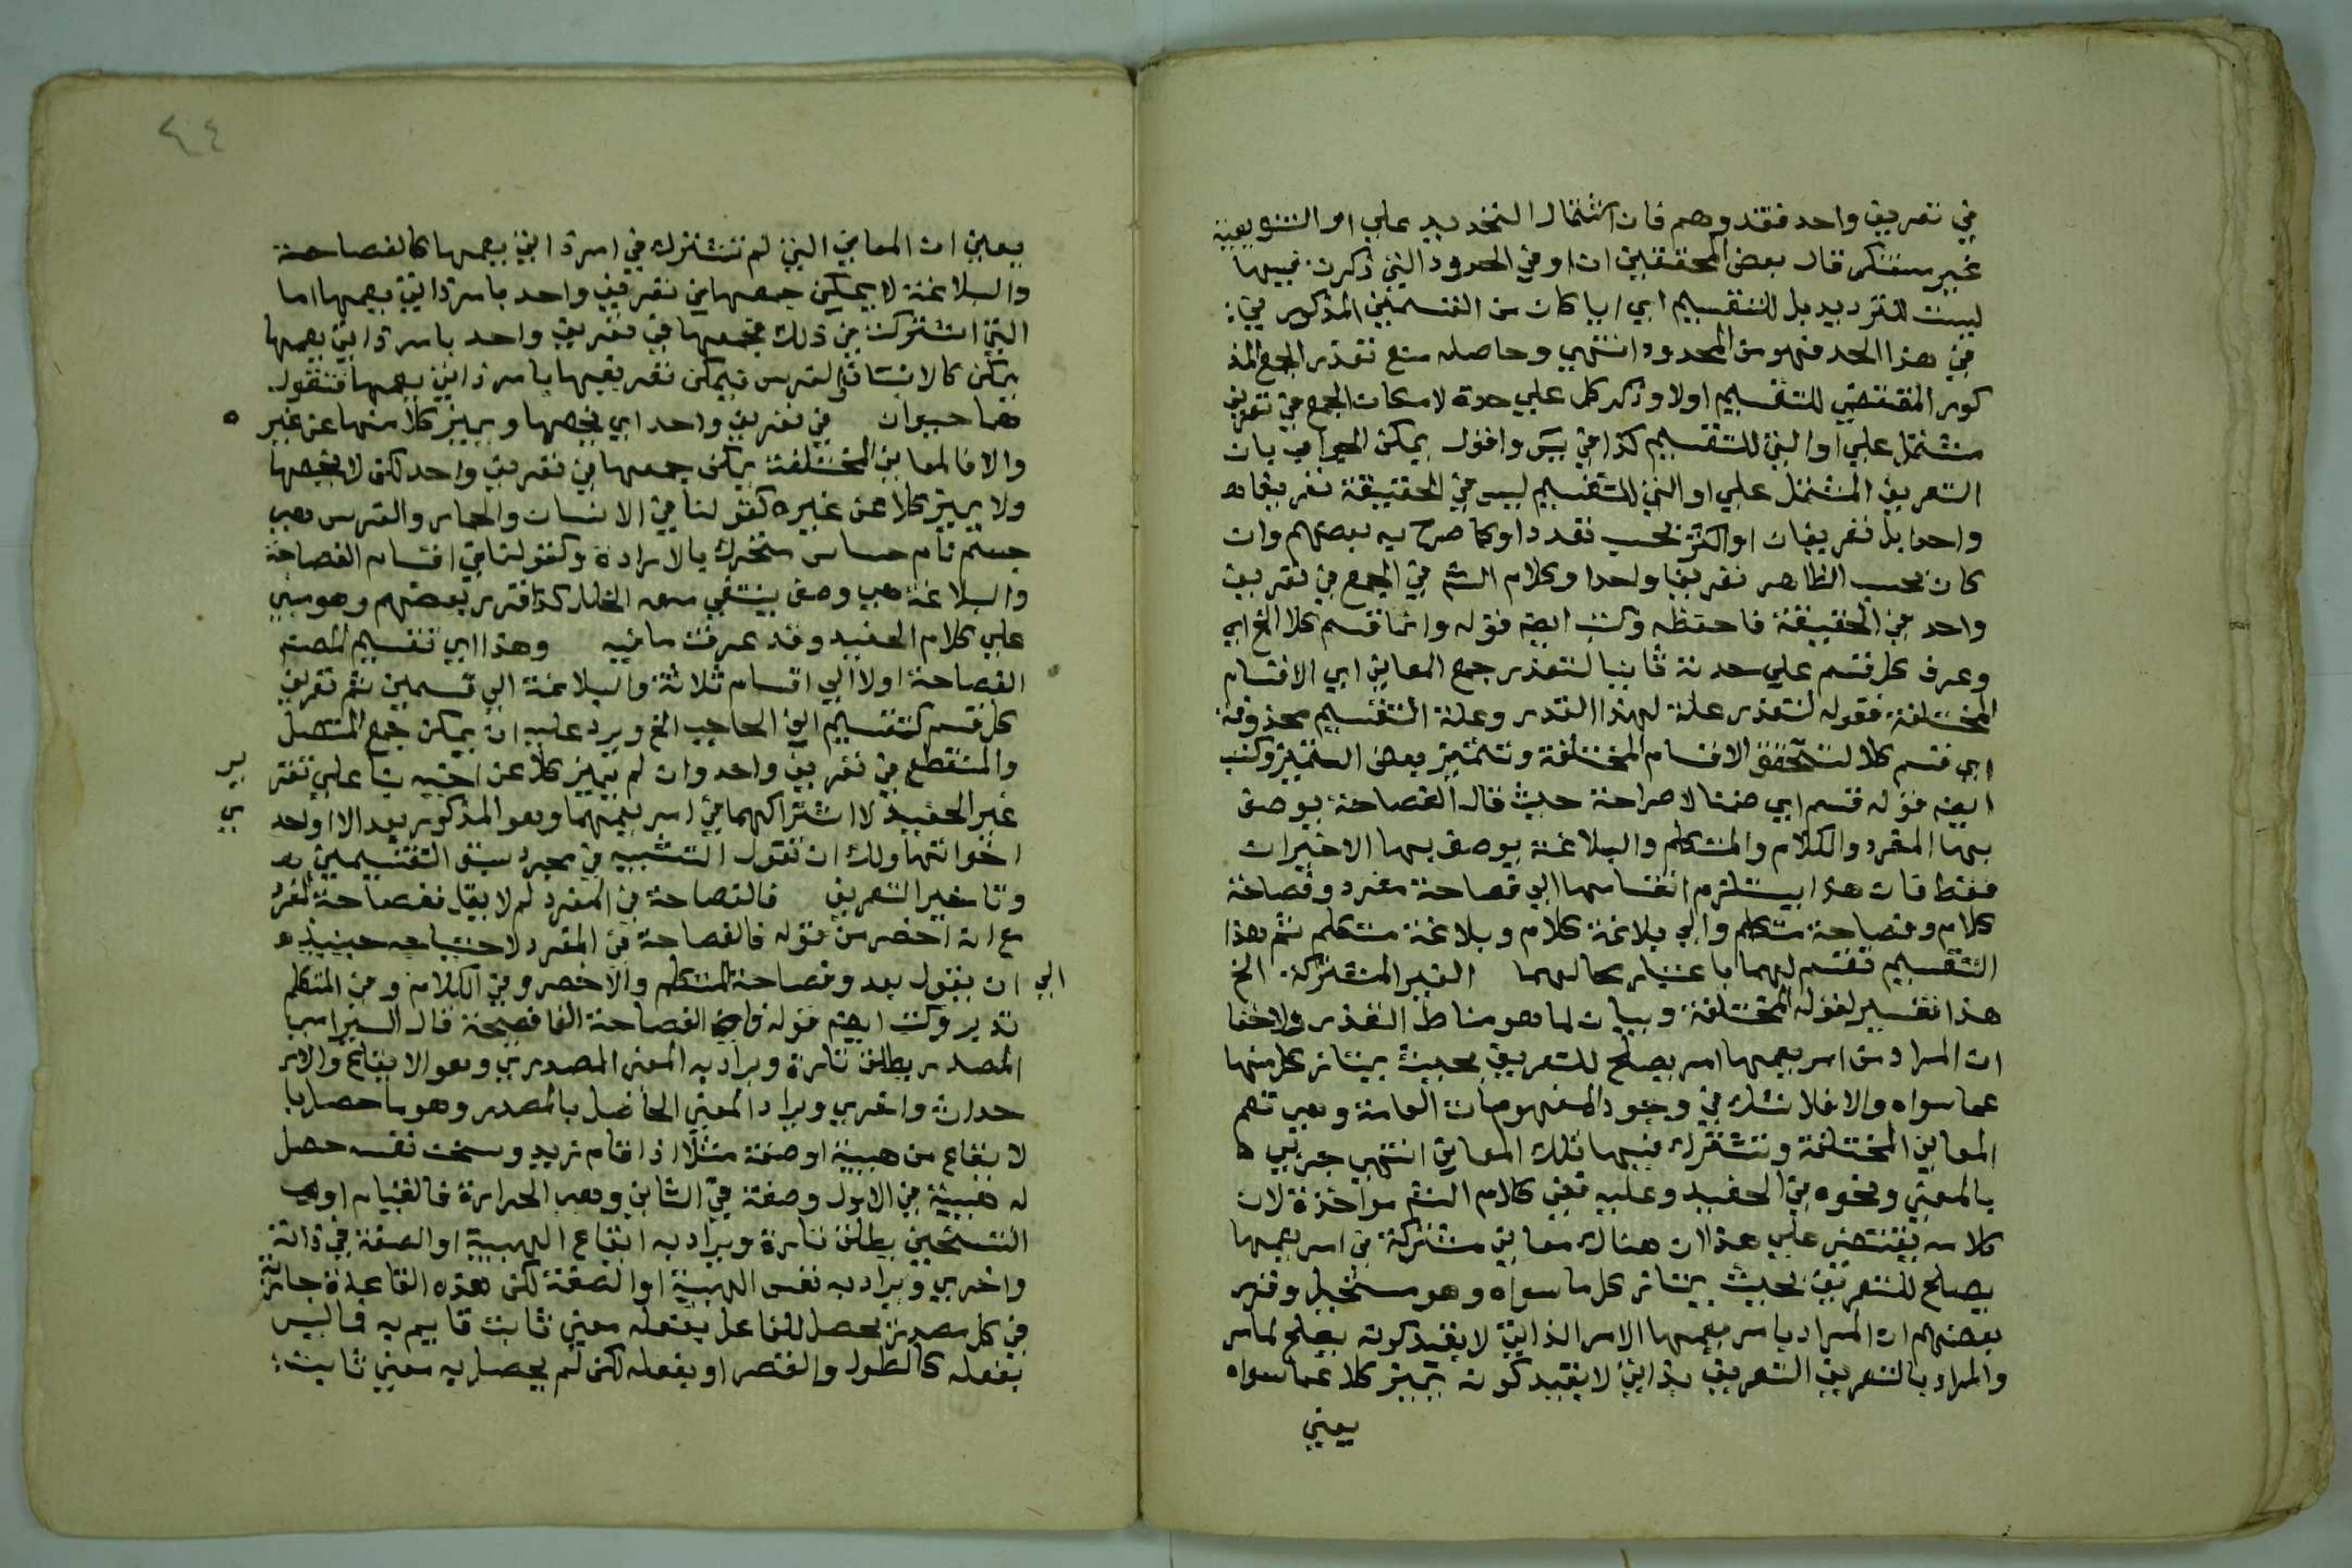 في تعريف واحد فقد وهم فان اشتمال التحديد علي او التنويعية
غير مستنكر قال بعض المحققين ان او في الحدود التي ذكرت فيها
ليست للترديد بل للتقسيم اي ايا كان من القسمين المذكورين
في هذا الحد فهو من المحدود انتهي وحاصله منع تعذر الجمع المذ
كور المقتضي للتقسيم اولا وذكر كل علي حدة لامكان الجمع في تعريف
مشتمل علي او التي للتقسيم كذا في يس واقول يمكن الجواب بان
التعريف المشتمل علي او التي للتقسيم ليس في الحقيقة تعريفا
واحدا بل تعريفان او اكثر بحسب تعدد او كما صرح به بعضهم وان
كان بحسب الظاهر تعريفا واحدا وكلام الش في الجمع في تعريف
واحد في الحقيقة فاحفظه وكتب ايضا قوله وانما قسم كلا الخ اي
وعرف كل قسم علي حدته ثانيا لتعذر جمع المعاني اي الاقسام
المختلفة فقوله لتعذر علة لهذا القدر وعلة التقسيم محذوفة
اي قسم كلا لتحقق الاقسام المختلفة وتتميز بعض التمييز وكتب
ايضا قوله قسم اي ضمنا لا صراحة حيث قال الفصاحة يوصف
بها المفرد والكلام والمتكلم والبلاغة يوصف بها الاخيران
فقط فان هذا يستلزم انقسامها الي فصاحة مفرد وفصاحة
كلام وفصاحة متكلم والي بلاغة كلام وبلاغة متكلم ثم هذا
التقسيم تقسيم لهما باعتبار محالهما الغير المشتركة الخ
هذا تفسير لقوله المختلفة وبيان لما هو مناط التعذر ولا خفا
ان المراد من امر يعمها امر يصلح للتعريف بحيث يمتاز كل منها
عما سواه والا فلا شك في وجود المفهومات العامة وهي تعم
المعاني المختلفة وتشترك فيها تلك المعاني انتهي جربي
بالمعني ونحوه في الحفيد وعليه ففي كلام الش مواخذة لان
كلامه يقتضي علي هذا ان هناك معاني مشتركة في امر يعمها
يصلح للتعريف بحيث يمتاز كل ما سواه وهو مستحيل وقرر
بعضهم ان المراد بامر يعمها الامر الذاتي لا بقيد كونه يصلح لما مر
والمراد بالتعريف التعريف بذاتي لا بقيد كونه يميز كلا عما سواه
يعني
٤٤
يعني ان المعاني التي لم تشترك في امر ذاتي يعمها كالفصاحة
والبلاغة لا يمكن جمعها في تعريف واحد بامر ذاتي يعمها اما
التي اشتركت في ذلك فجمعها في تعريف واحد بامر ذاتي يعمها
يمكن كالانسان والفرس فيمكن تعريفها بامر ذاتي يعمها فتقول
هما حيوان في تعريف واحد اي يخصها ويميز كلا منها عن غيره
والا فالمعاني المختلفة يمكن جمعها في تعريف واحد لكن لا يخصها
ولا يميز كلا عن غيره كقولنا في الانسان والحمار والفرس هي
جسم نام حساس متحرك بالارادة وكقولنا في اقسام الفصاحة
والبلاغة هي وصف ينتفي معه الخلل كذا قرر بعضهم وهو مبني
علي كلام الحفيد وقد عرفت ما فيه وهذا اي تقسيم المصنف
الفصاحة اولا الي اقسام ثلاثة والبلاغة الي قسمين ثم تعريف
كل قسم كتقسيم ابن الحاجب الخ ويرد عليه ان يمكن جمع المتصل
والمنقطع في تعريف واحد وان لم يميز كلا عن اخيه بنا علي تقرير
غير الحفيد لاشتراكهما في امر يعمهما وهو المذكور بعد الا او احدي
اخواتها ولك ان تقول التشبيه في مجرد سبق التقسيمين
وتاخير التعريف فالفصاحة في المفرد لم لا يقل ففصاحة المفرد
مع انه اخصر من قوله فالفصاحة في المفرد لاحتياجه حينيذ
الي ان يقول بعد وفصاحة المتكلم والاخصر وفي الكلام وفي المتكلم
تدبر وكتب ايضا قوله فالفصاحة الفا فصيحة قال السيرامي
المصدر يطلق تارة ويراد به المعني المصدري وهو الايقاع والا
حداث واخري ويراد المعني الحاصل بالمصدر وهو ما حصل با
لايقاع من هيية او صفة مثلا اذا قام زيد وسخن نفسه حصل
له هيية في الاول وصفة في الثاني وهي الحرارة فالقيام او
التسخين يطلق تارة ويراد به ايقاع الهيية او الصفة في ذاته
واخري ويراد به نفس الهيية او الصفة لكن هذه القاعدة جارية
في كل مصدر يحصل للفاعل بفعله معني ثابت قايم به فما ليس
بفعله كالطول والقصر او بفعله لكن لم يحصل به معني ثابت